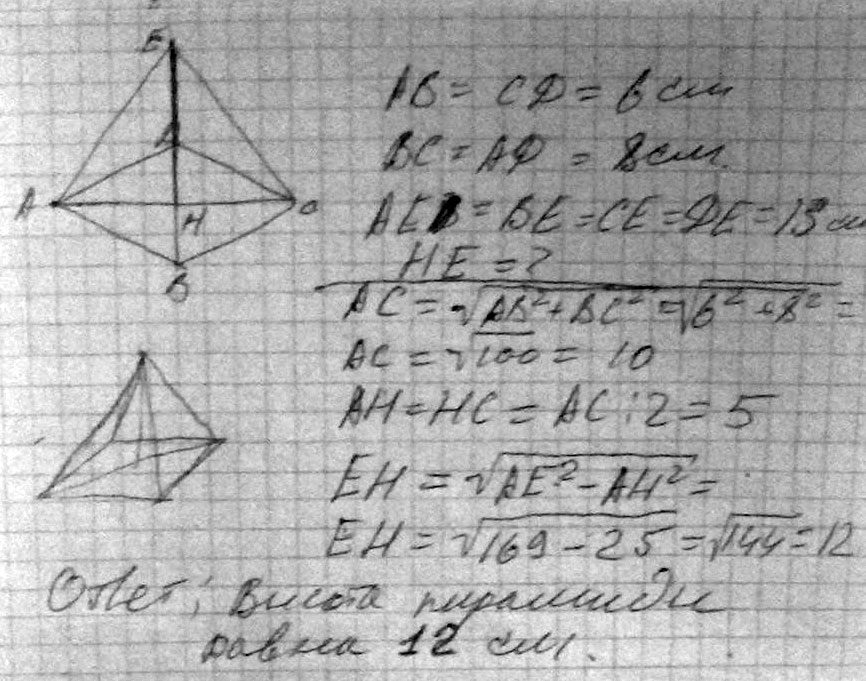 E
D
A H C
B
AB = CD = 6 см
BC = AD = 8 см.
AE = BE = CE = DE = 13 см
HE = ?
AC = √AB²+BC² = √6²+8² =
AC = √100 = 10
AH = HC = AC : 2 = 5
EH = √AE²-AH² =
EH = √169-25 = √144 = 12
Ответ: Высота пирамиды
равна 12 см.